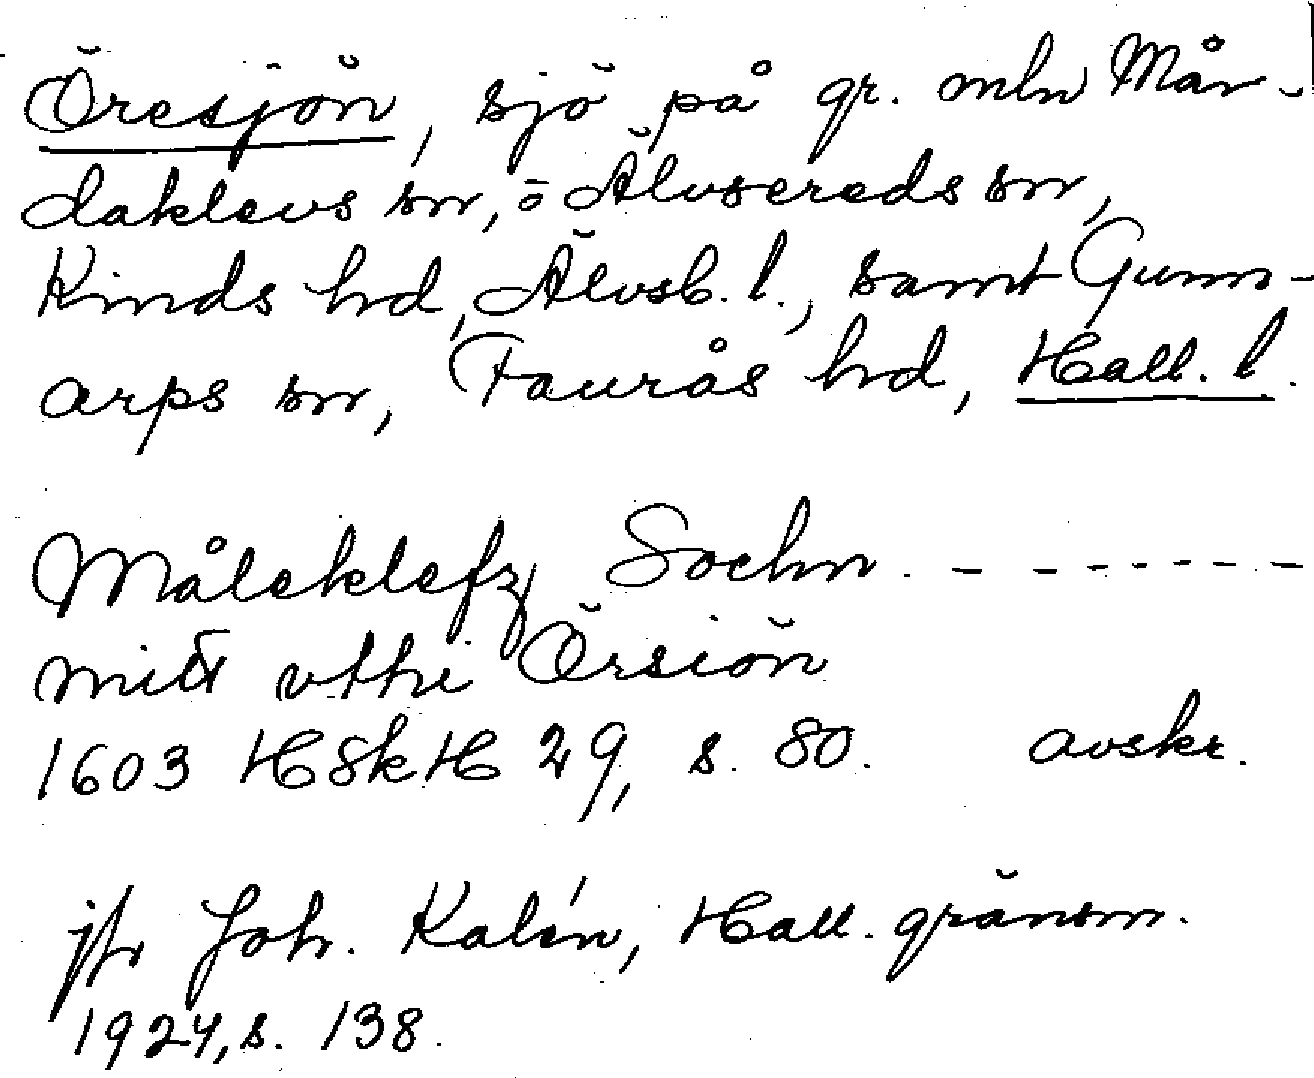 Öresjön, sjö på gr. mln Mår-
daklevs sn, o Älvsereds sn,
Kinds hd, Älvsb. l., samt Gunn-
arps sn, Faurås hd, Hall. l.
Måleklefz Sochn. - - - - - - -
mitt vthi Örsiön
1603 HSkH 29, s. 80. avskr.
jfr Joh. Kalén, Hall. gränsm.
1924, s. 138.